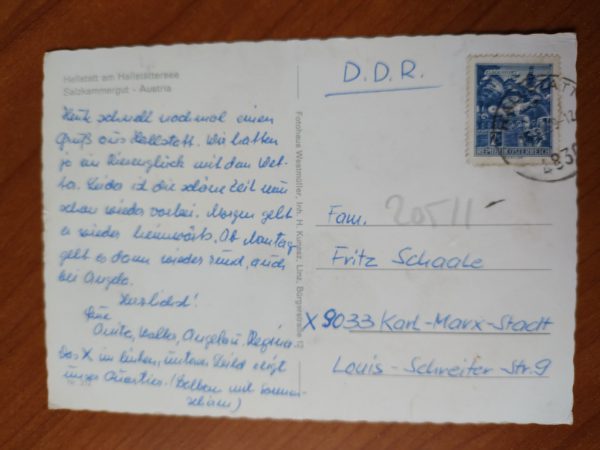 Hallstatt am Hallstättersee
Salzkammergut - Austria
Heute schnell nochmal einen
Gruß aus Hallstatt. Wir hatten
ja ein Riesenglück mit dem Wet-
ter. Leider ist die schöne Zeit nun
schon wieder vorbei. Morgen geht
es wieder heimwärts. Ab Montag
geht es dann wieder rund, auch
bei Angela.
Herzlichst!
Eure
Anita, Walter, Angela u. Regina
Das X im linken, unteren Bild zeigt
unser Quartier. (Balkon mit Sonnen-
schirm)
Fotohaus Westmüller, Inh. H. Linz, Bürgerstraße 12
D.D.R.
REPUBLIK ÖSTERREICH
4830
20511
Fam.
Fritz Schaale
X 9033 Karl-Marx-Stadt
Louis-Schreiter-Str. 9